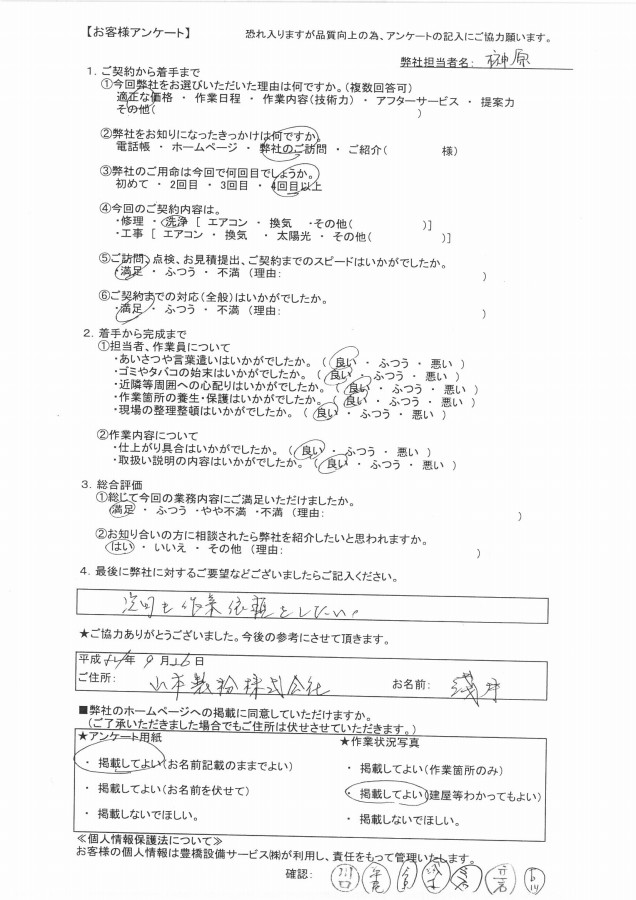 【お客様アンケート】 恐れ入りますが品質向上の為、アンケートの記入にご協力願います。
弊社担当者名: 榊原
1．ご契約から着手まで
①今回弊社をお選びいただいた理由は何ですか。(複数回答可)
適正な価格 ・ 作業日程 ・ 作業内容(技術力) ・ アフターサービス ・ 提案力
その他( )
②弊社をお知りになったきっかけは何ですか。
電話帳 ・ ホームページ ・ 弊社のご訪問 ・ ご紹介( 様)
③弊社のご用命は今回で何回目でしょうか。
初めて ・ 2回目 ・ 3回目 ・ 4回目以上
④今回のご契約内容は。
・修理 ・ 洗浄 [ エアコン ・ 換気 ・その他( )]
・工事 [ エアコン ・ 換気 ・ 太陽光 ・ その他( )]
⑤ご訪問、点検、お見積提出、ご契約までのスピードはいかがでしたか。
・満足 ・ ふつう ・ 不満 (理由: )
⑥ご契約までの対応(全般)はいかがでしたか。
・満足 ・ ふつう ・ 不満 (理由: )
2．着手から完成まで
①担当者、作業員について
・あいさつや言葉遣いはいかがでしたか。 ( 良い ・ ふつう ・ 悪い )
・ゴミやタバコの始末はいかがでしたか。 ( 良い ・ ふつう ・ 悪い )
・近隣等周囲への心配りはいかがでしたか。 ( 良い ・ ふつう ・ 悪い )
・作業箇所の養生・保護はいかがでしたか。 ( 良い ・ ふつう ・ 悪い )
・現場の整理整頓はいかがでしたか。 ( 良い ・ ふつう ・ 悪い )
②作業内容について
・仕上がり具合はいかがでしたか。 ( 良い ・ ふつう ・ 悪い )
・取扱い説明の内容はいかがでしたか。 ( 良い ・ ふつう ・ 悪い )
3．総合評価
①総じて今回の業務内容にご満足いただけましたか。
満足 ・ ふつう ・やや不満 ・不満 (理由: )
②お知り合いの方に相談されたら弊社を紹介したいと思われますか。
はい ・ いいえ ・ その他 (理由: )
4．最後に弊社に対するご要望などございましたらご記入ください。
次回も作業依頼をしたい。
★ご協力ありがとうございました。今後の参考にさせて頂きます。
平成 年 9 月 26 日
ご住所: 山本製粉株式会社 お名前: 浅井
■弊社のホームページへの掲載に同意していただけますか。
(ご了承いただきました場合でもご住所は伏せさせていただきます。)
★アンケート用紙 ★作業状況写真
・ 掲載してよい(お名前記載のままでよい) ・ 掲載してよい(作業箇所のみ)
・ 掲載してよい(お名前を伏せて) ・ 掲載してよい(建屋等わかってもよい)
・ 掲載しないでほしい。 ・ 掲載しないでほしい。
≪個人情報保護法について≫
お客様の個人情報は豊橋設備サービス㈱が利用し、責任をもって管理いたします。
確認: 川口